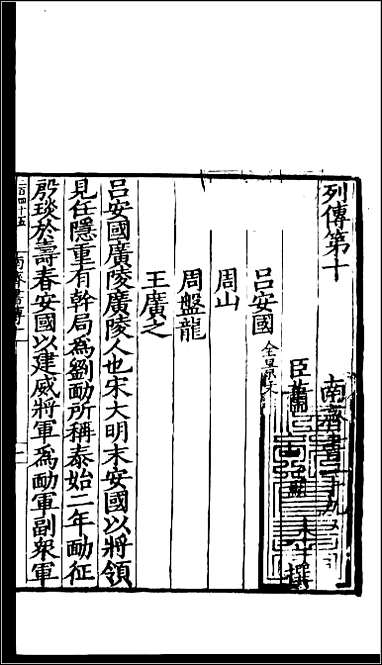 列傳第十
南齊書二十九
臣蕭子顯撰
呂安國 全景文
周山
周盤龍
王廣之
呂安國廣陵廣陵人也宋大明末安國以將領
見任隱重有幹局爲劉勔所稱泰始二年勔征
殷琰於壽春安國以建威將軍爲勔軍副衆軍
南齊書傳十